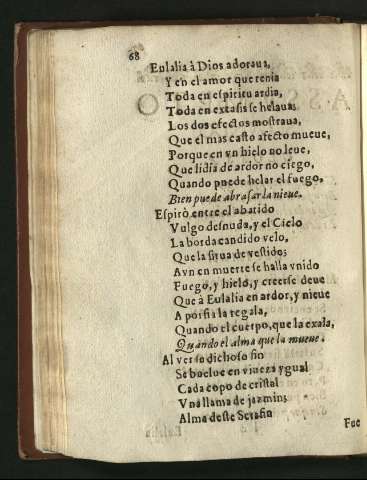 68
Eulalia à Dios adoraua,
Y en el amor que tenia
Toda en espiritu ardia,
Toda en extasis se helaua:
Los dos efectos mostraua,
Que el mas casto afecto mueue,
Porque en vn hielo no leue,
Que lidia de ardor no ciego,
Quando puede helar el fuego,
Bien puede abrasar la nieue.
Espirò entre el abatido
Vulgo desnuda, y el Cielo
La borda candido velo,
Que la sirua de vestido;
Avn en muerte se halla vnido
Fuego, y hielo, y creerse deue
Que à Eulalia en ardor, y nieue
A porfia la regala,
Quando el cuerpo, que la exala,
Quando el alma que la mueue.
Al verse dichoso fin
Se buelue en viueza ygual
Cada copo de cristal
Vna llama de jazmin;
Alma deste Serafin
Fue